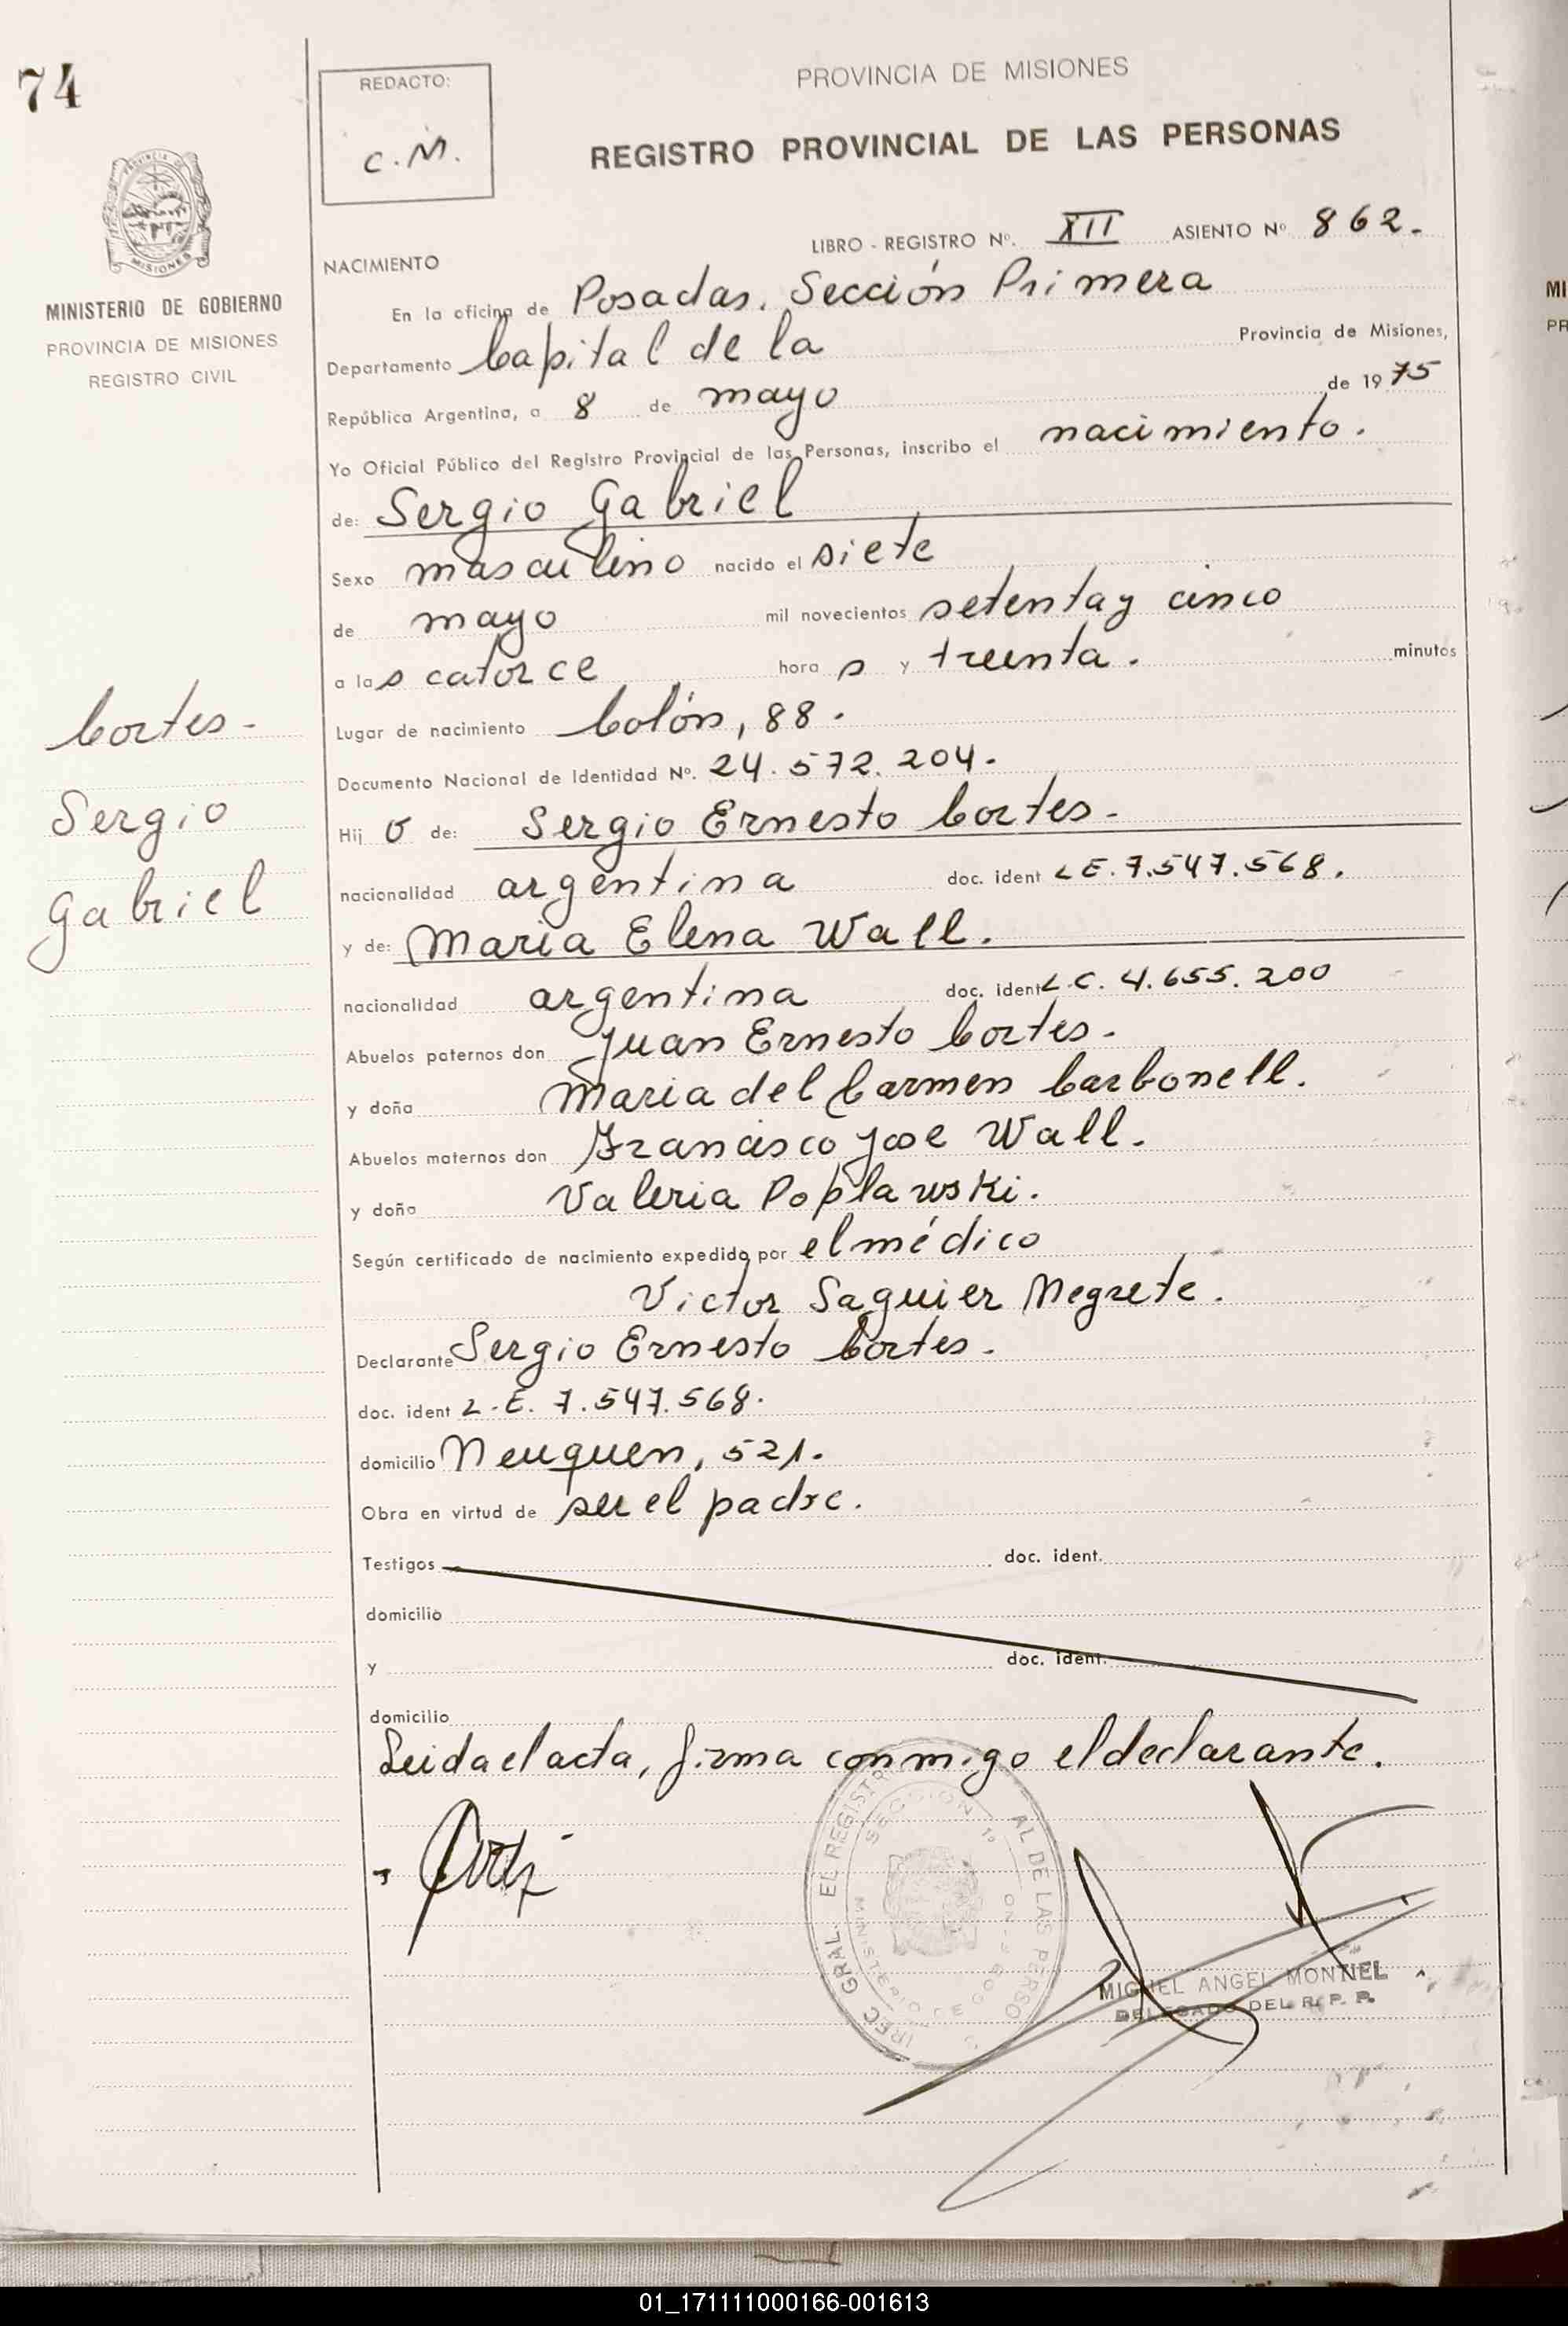 74
REDACTO:
C.M.
PROVINCIA DE MISIONES
REGISTRO PROVINCIAL DE LAS PERSONAS
MISIONES
MINISTERIO DE GOBIERNO
PROVINCIA DE MISIONES
REGISTRO CIVIL
LIBRO - REGISTRO Nº. XII ASIENTO Nº 862.
NACIMIENTO
En la oficina de Posadas. Sección Primera
Departamento Capital de la Provincia de Misiones,
República Argentina, a 8 de mayo de 1975
Yo Oficial Público del Registro Provincial de las Personas, inscribo el nacimiento.
de: Sergio Gabriel
Sexo masculino nacido el siete
de mayo mil novecientos setenta y cinco
a las catorce horas y treinta. minutos
Lugar de nacimiento Colón, 88.
Documento Nacional de Identidad Nº. 24.572.204.
Hijo de: Sergio Ernesto Cortes.
nacionalidad argentina doc. ident L E. 7.547.568.
y de: Maria Elena Wall.
nacionalidad argentina doc. ident L.C. 4.655.200
Abuelos paternos don Juan Ernesto Cortes.
y doña Maria del Carmen Carbonell.
Abuelos maternos don Francisco Jose Wall.
y doña Valeria Poplawski.
Según certificado de nacimiento expedido por el médico
Victor Saguier Negrete.
Declarante Sergio Ernesto Cortes.
doc. ident L.E. 7.547.568.
domicilio Neuquen, 521.
Obra en virtud de ser el padre.
Testigos doc. ident.
domicilio
y doc. ident.
domicilio
Leida el acta, firma conmigo el declarante.
Cortes -
Sergio
Gabriel
SECCION 1º
MIGUEL ANGEL MONTIEL
DELEGADO DEL R. P. P.
MI
PR
01_171111000166-001613